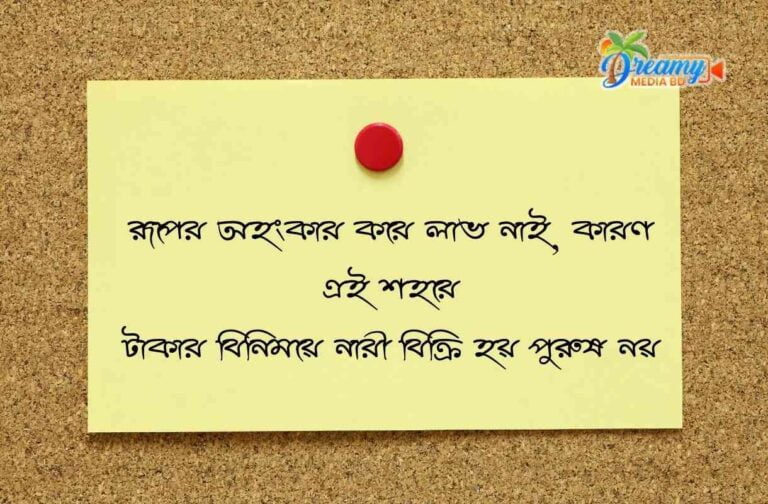 Dreamy
MEDIA BD
রূপের অহংকার করে লাভ নাই, কারণ
এই শহরে
টাকার বিনিময়ে নারী বিক্রি হয় পুরুষ নয়